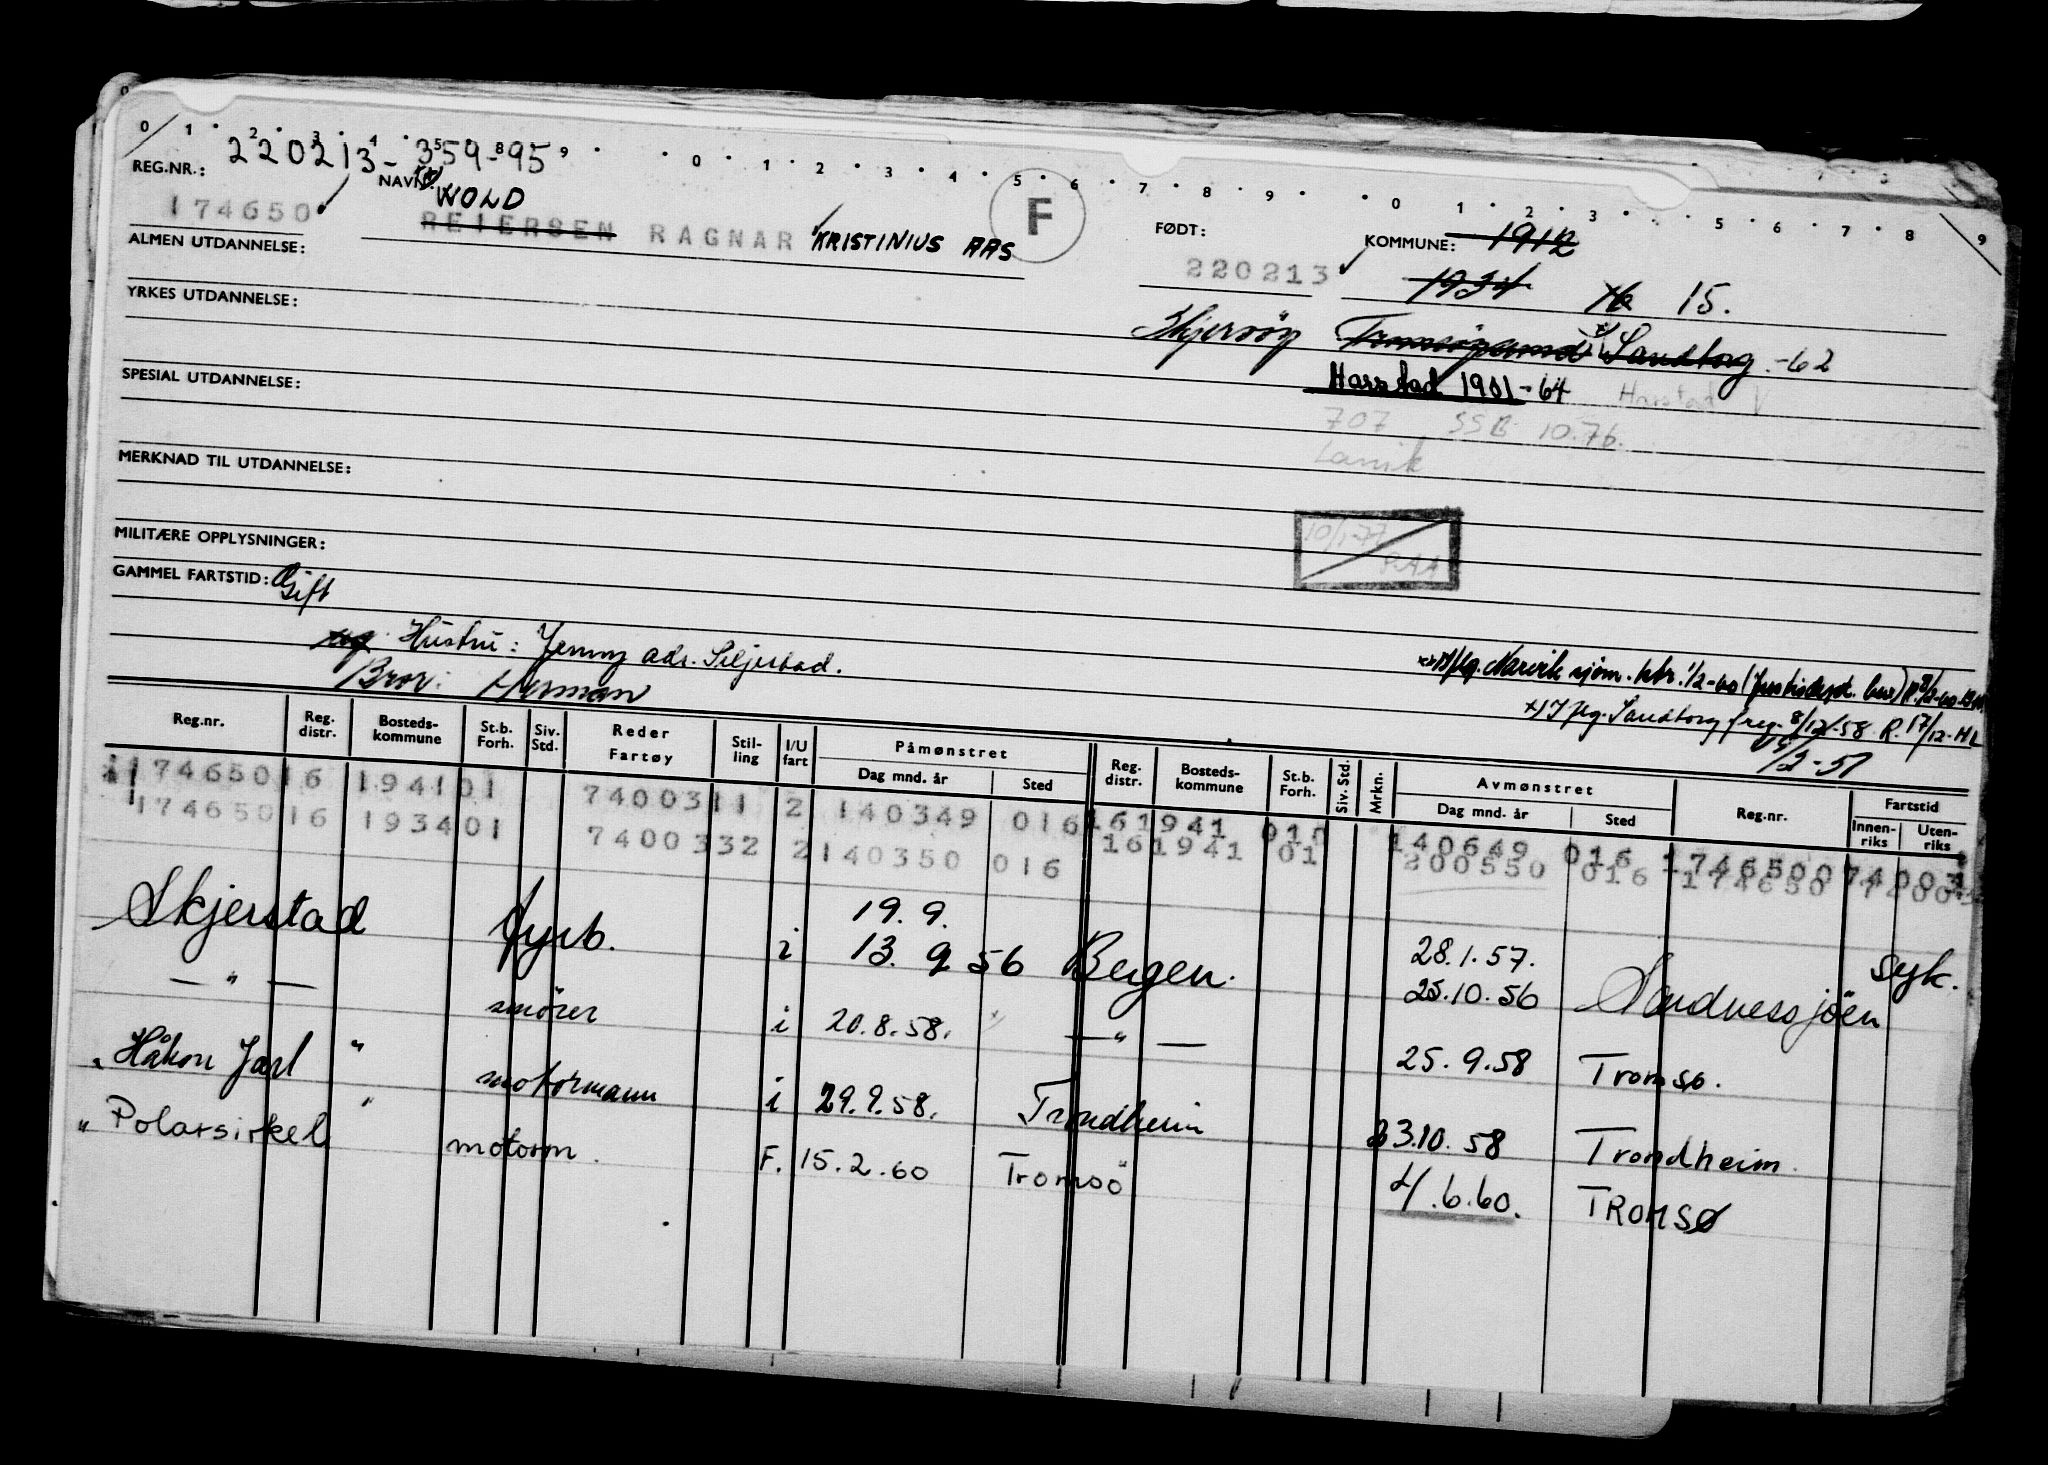 0 1 2 3 4 5 8 9 0 1 2 3 4 5 6 7 8 9 0 1 2 3 5 6 7 8 9
REG.NR.: 220213-359-95
NAVN: WOLD
174650 REIERSEN RAGNAR KRISTINIUS AAS F
FØDT: 220213
KOMMUNE: 1912
1934 16 15.
ALMEN UTDANNELSE:
YRKES UTDANNELSE:
Skjervöy Tromsöysund Sandtorg -62
Harstad 1901-64 Harstad V
SPESIAL UTDANNELSE:
707 SSB 10.76.
Larvik
MERKNAD TIL UTDANNELSE:
10/1-77
RAA
MILITÆRE OPPLYSNINGER:
GAMMEL FARTSTID: Gift
Hustru: Jenny adr. Seljestad.
Bror: Herman
Narvik sjöm. ktr. 1/2-60
Sandtorg freg. 8/12-58 R. 17/12-HL
/2-51
Reg.nr. Reg. distr. Bosteds- kommune St.b. Forh. Siv. Std. Reder Fartøy Stil- ling I/U fart Påmønstret Dag mnd. år Sted Reg. distr. Bosteds- kommune St.b. Forh. Siv. Std. Mrkn. Avmønstret Dag mnd. år Sted Reg.nr. Fartstid Innen- riks Uten- riks
174650 16 1941 01 7400311 2 140349 016 16 1941 010 140649 016 1746500 74003
174650 16 1934 01 7400332 2 140350 016 16 1941 01 200550 016 174650
Skjerstad fyrb. i 19.9.
13. 9 56 Bergen. 28.1.57. syk.
25.10.56 Sandnessjöen
— " — smörer i 20.8.58. — " — 25.9.58 Tromsö.
" Håkon Jarl " motormann i 29.9.58. Trondheim 23.10.58 Trondheim.
" Polarsirkel " motorm. F. 15.2.60 Tromsö 4.6.60. TROMSØ